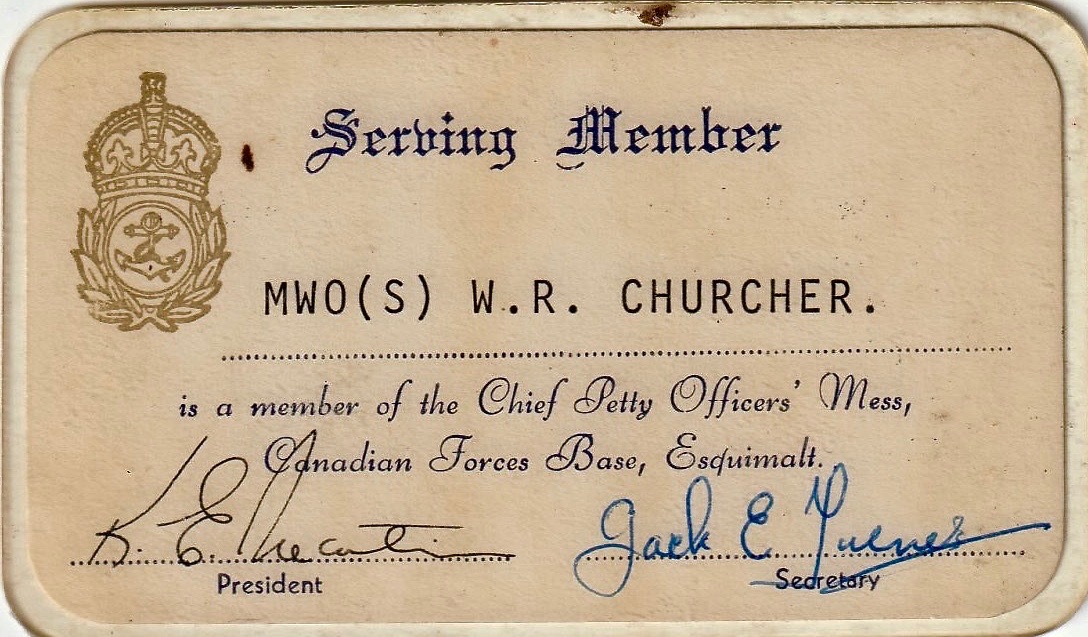 Serving Member
MWO(S) W.R. CHURCHER.
is a member of the Chief Petty Officers' Mess,
Canadian Forces Base, Esquimalt.
K. E. Jack E Turner
President Secretary